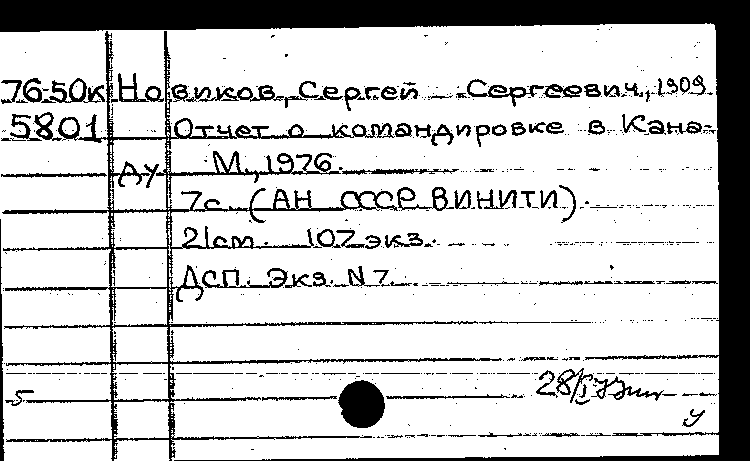 76-50к Новиков, Сергей Сергеевич, 1909
5801 Отчет о командировке в Кана-
ду М., 1976.
7с. (АН СССР ВИНИТИ).
21см. 107 экз.
ДСП. Экз. N 7.
5 28/I
У